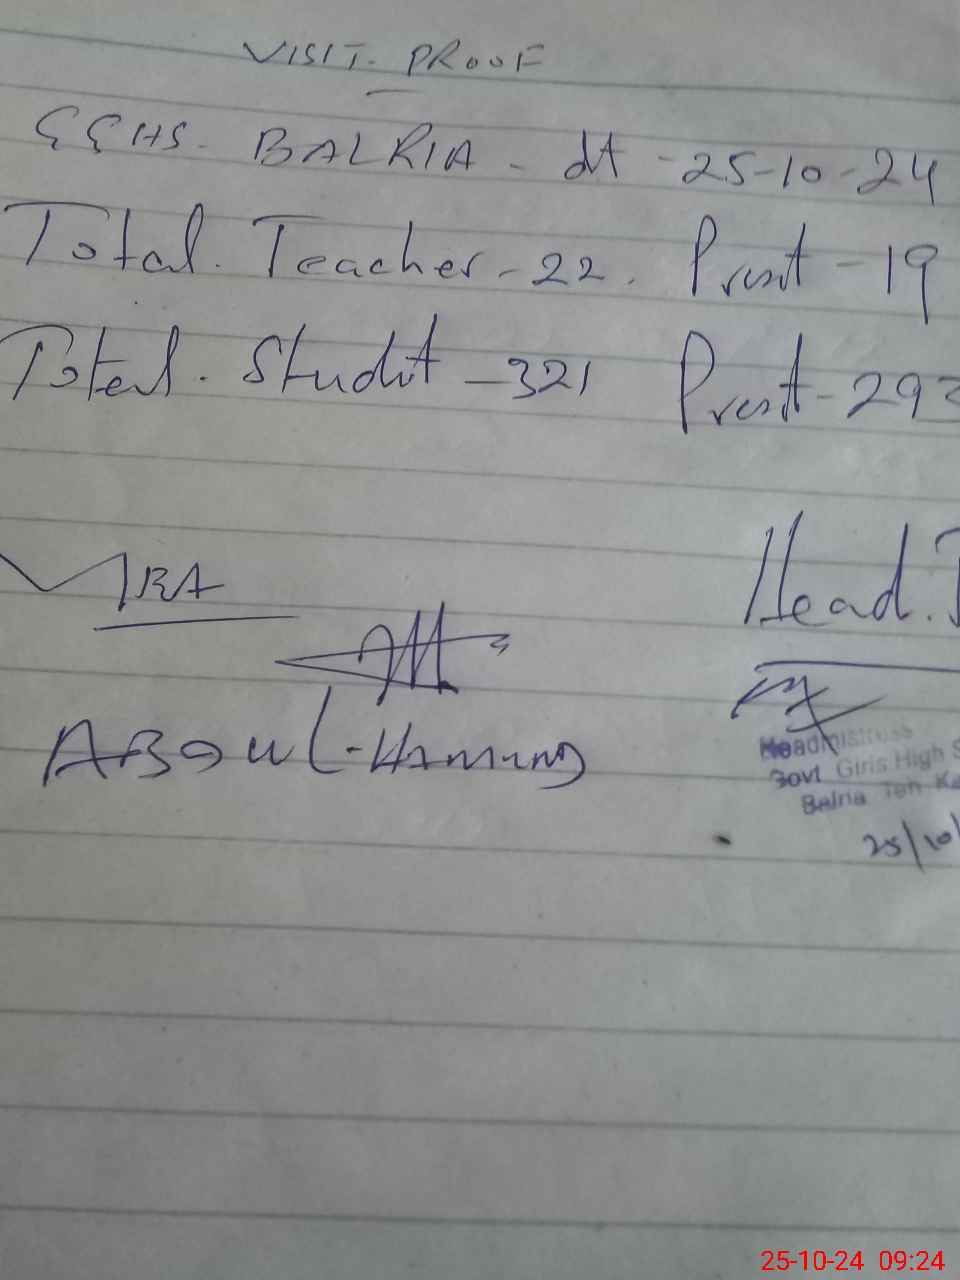 VISIT. PROOF
GGHS. BALRIA - dt - 25-10-24
Total. Teacher - 22. Presnt - 19
Total. Studnt - 321 Presnt - 293
Head. T
Headmistress
Govt Girls High S
Balria Teh Ka
25/10/
ABDUL-HAMING
25-10-24 09:24